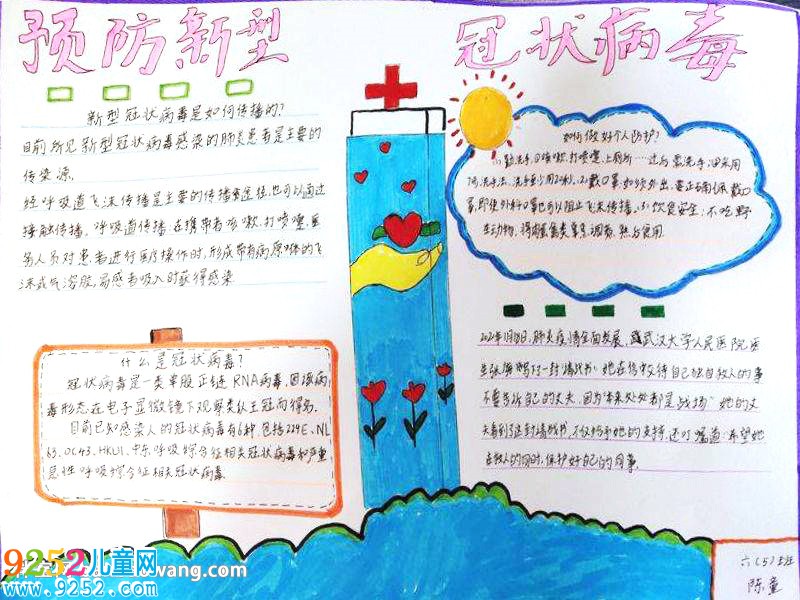 预防新型 冠状病毒
新型冠状病毒是如何传播的?
目前所见新型冠状病毒感染的肺炎患者是主要的
传染源。
经呼吸道飞沫传播是主要的传播 途径,也可以通过
接触传播。呼吸道传播,在携带者咳嗽、打喷嚏,医
务人员对患者进行医疗操作时,形成带有病原 的飞
沫或气溶胶,易感者吸入时获得感染
什么是冠状病毒?
冠状病毒是一类单股正链RNA病毒,因该病
毒形态在电子显微镜下观察类似王冠而得名。
目前已知感染人的冠状病毒有6种,包括229E、NL
63、OC43、HKU1、中东呼吸综合征相关冠状病毒和严重
急性呼吸综合征相关冠状病毒
如何做好个人防护?
勤洗手,咳嗽、打喷嚏、上厕所……过后要洗手,
洗手法,洗手至少 戴口罩如须外出,要正确佩戴口
罩,即使外科口罩也可以阻止飞沫传播。 饮食安全:不吃野
生动物,
肺炎疫情全面发展, 武汉大学人民医院医
生张 写下一封请战书:她在信中 自己 的事
不要告诉自己的丈夫,因为“本来处处都是战场”她的丈
夫看到了这封请战书,不仅给予她的支持,还叮嘱道:希望她
在救人的同时,保护好自己的同事。
六(5)班
陈童
9252儿童网
wang.com
www.9252.com